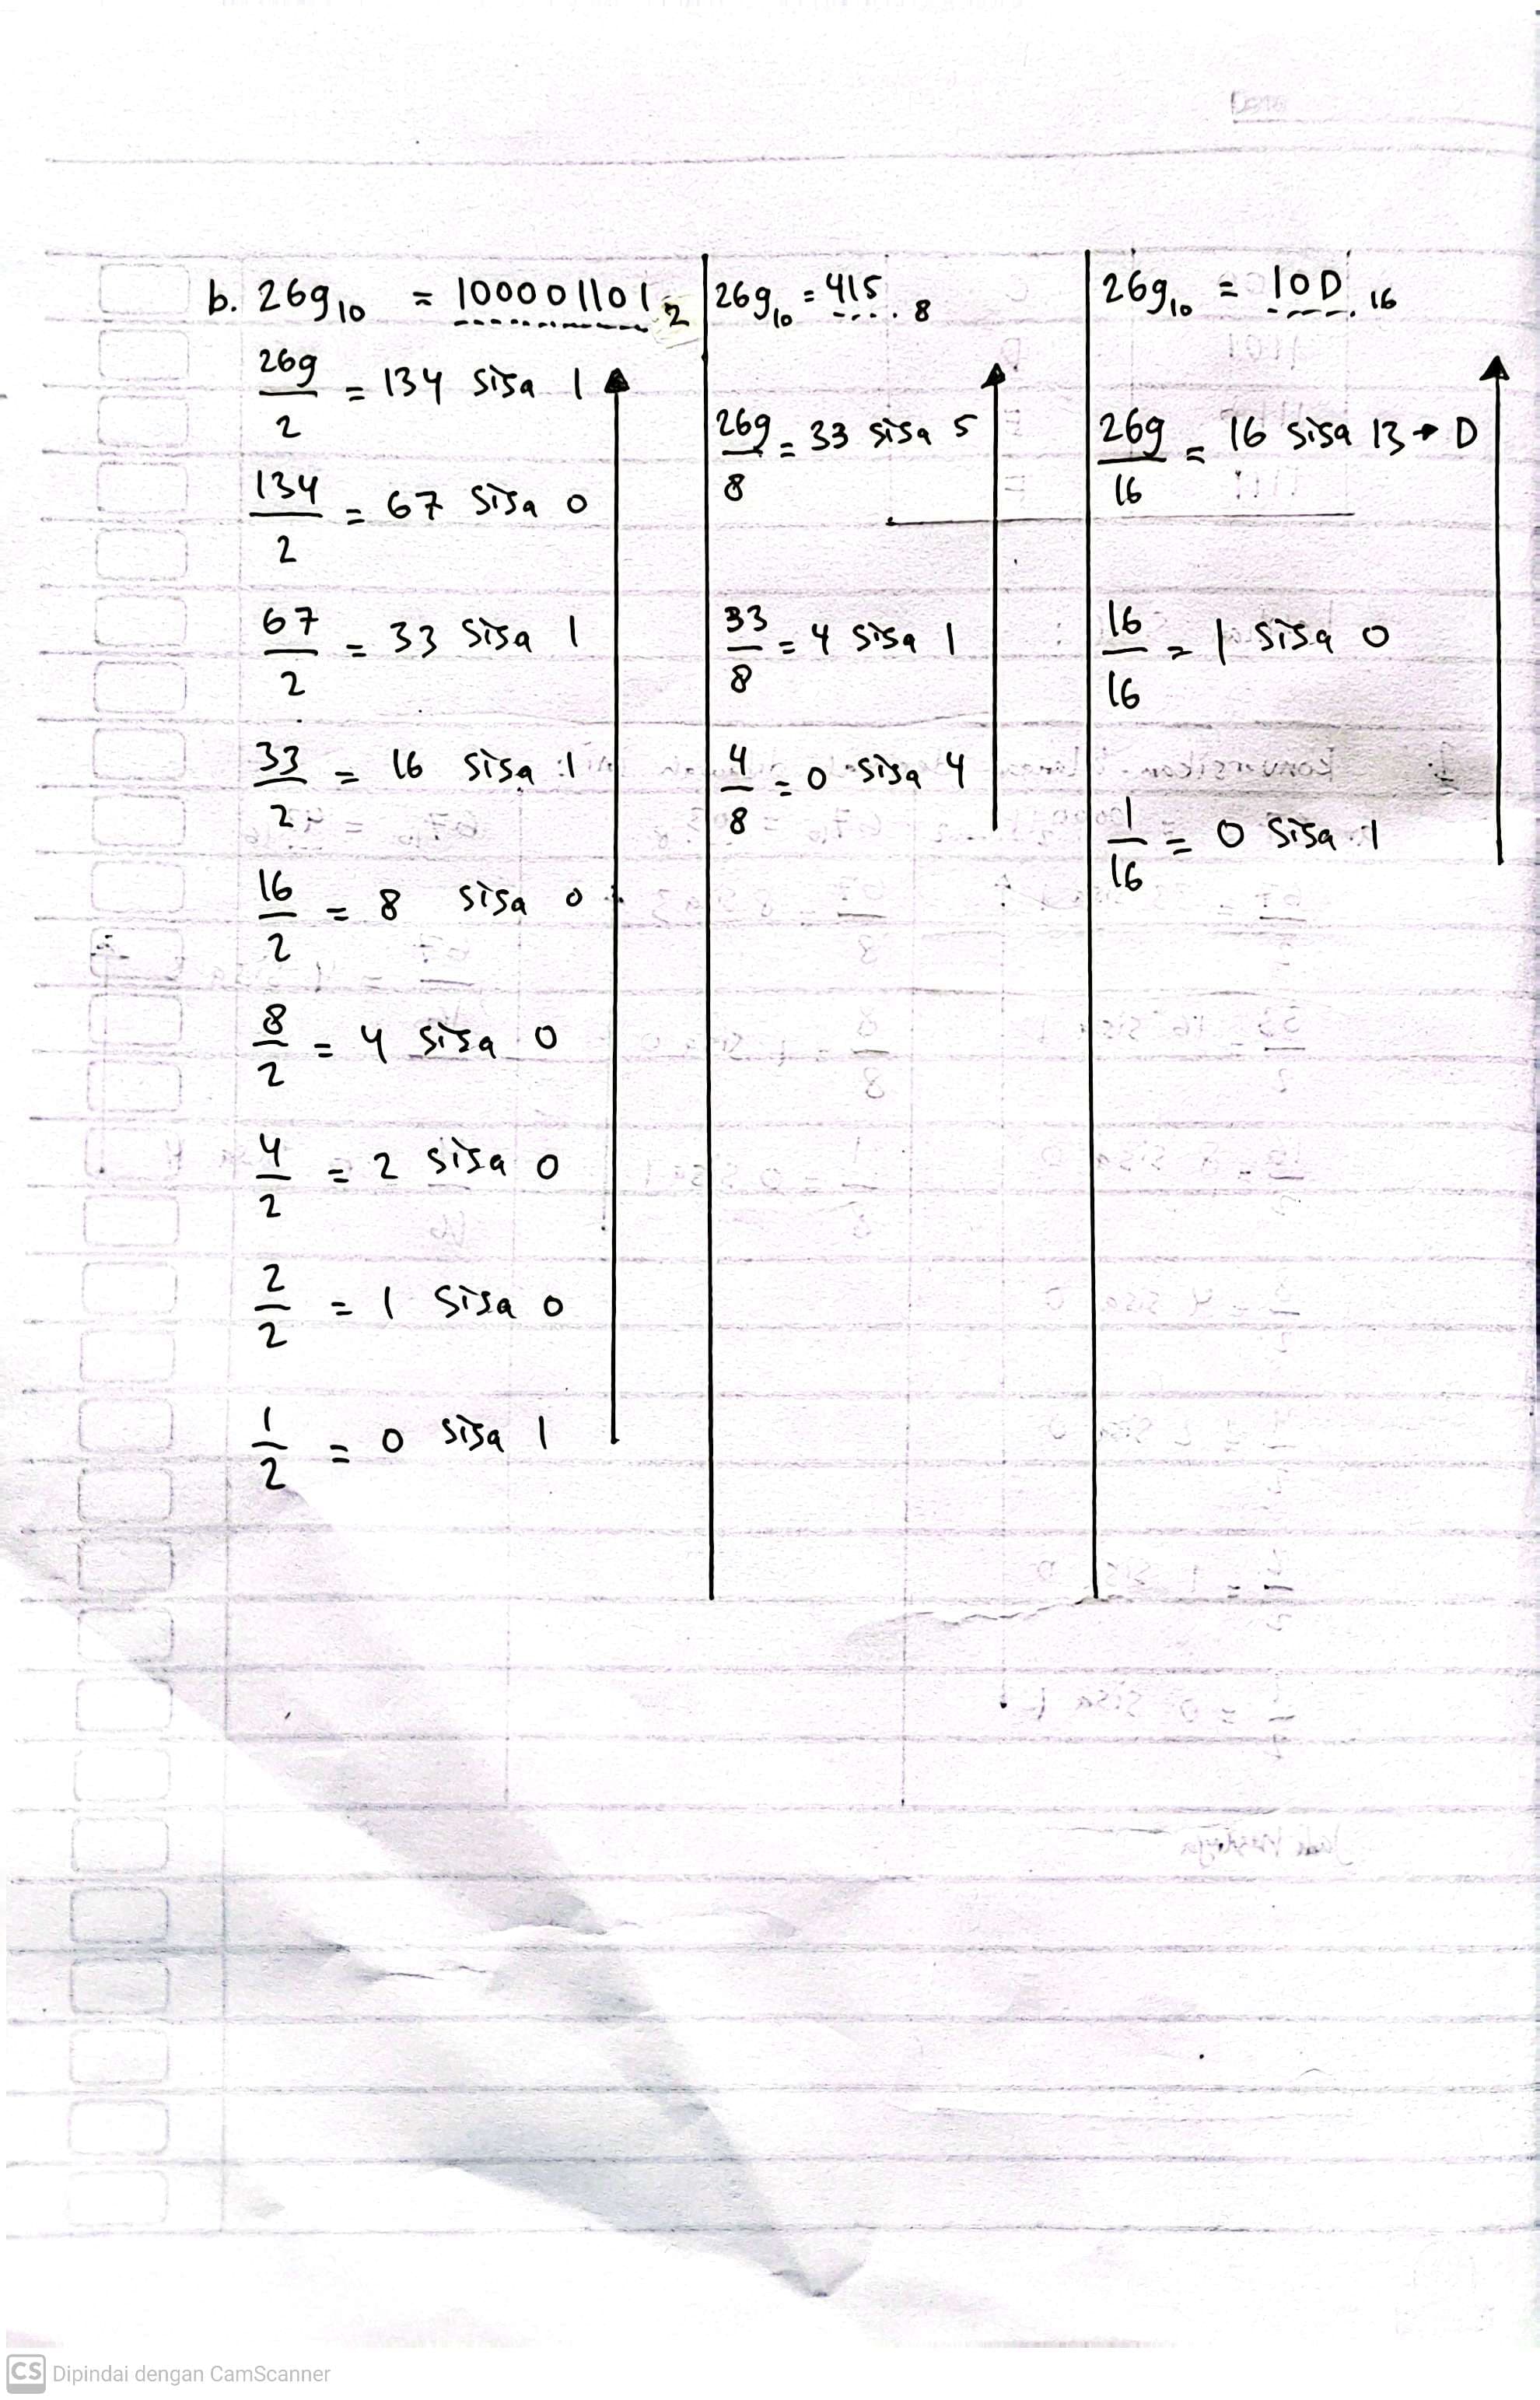 b. 269₁₀ = 100001101₂
269/2 = 134 sisa 1
134/2 = 67 sisa 0
67/2 = 33 sisa 1
33/2 = 16 sisa 1
16/2 = 8 sisa 0
8/2 = 4 sisa 0
4/2 = 2 sisa 0
2/2 = 1 sisa 0
1/2 = 0 sisa 1
269₁₀ = 415₈
269/8 = 33 sisa 5
33/8 = 4 sisa 1
4/8 = 0 sisa 4
269₁₀ = 10D₁₆
269/16 = 16 sisa 13 → D
16/16 = 1 sisa 0
1/16 = 0 sisa 1
CS Dipindai dengan CamScanner